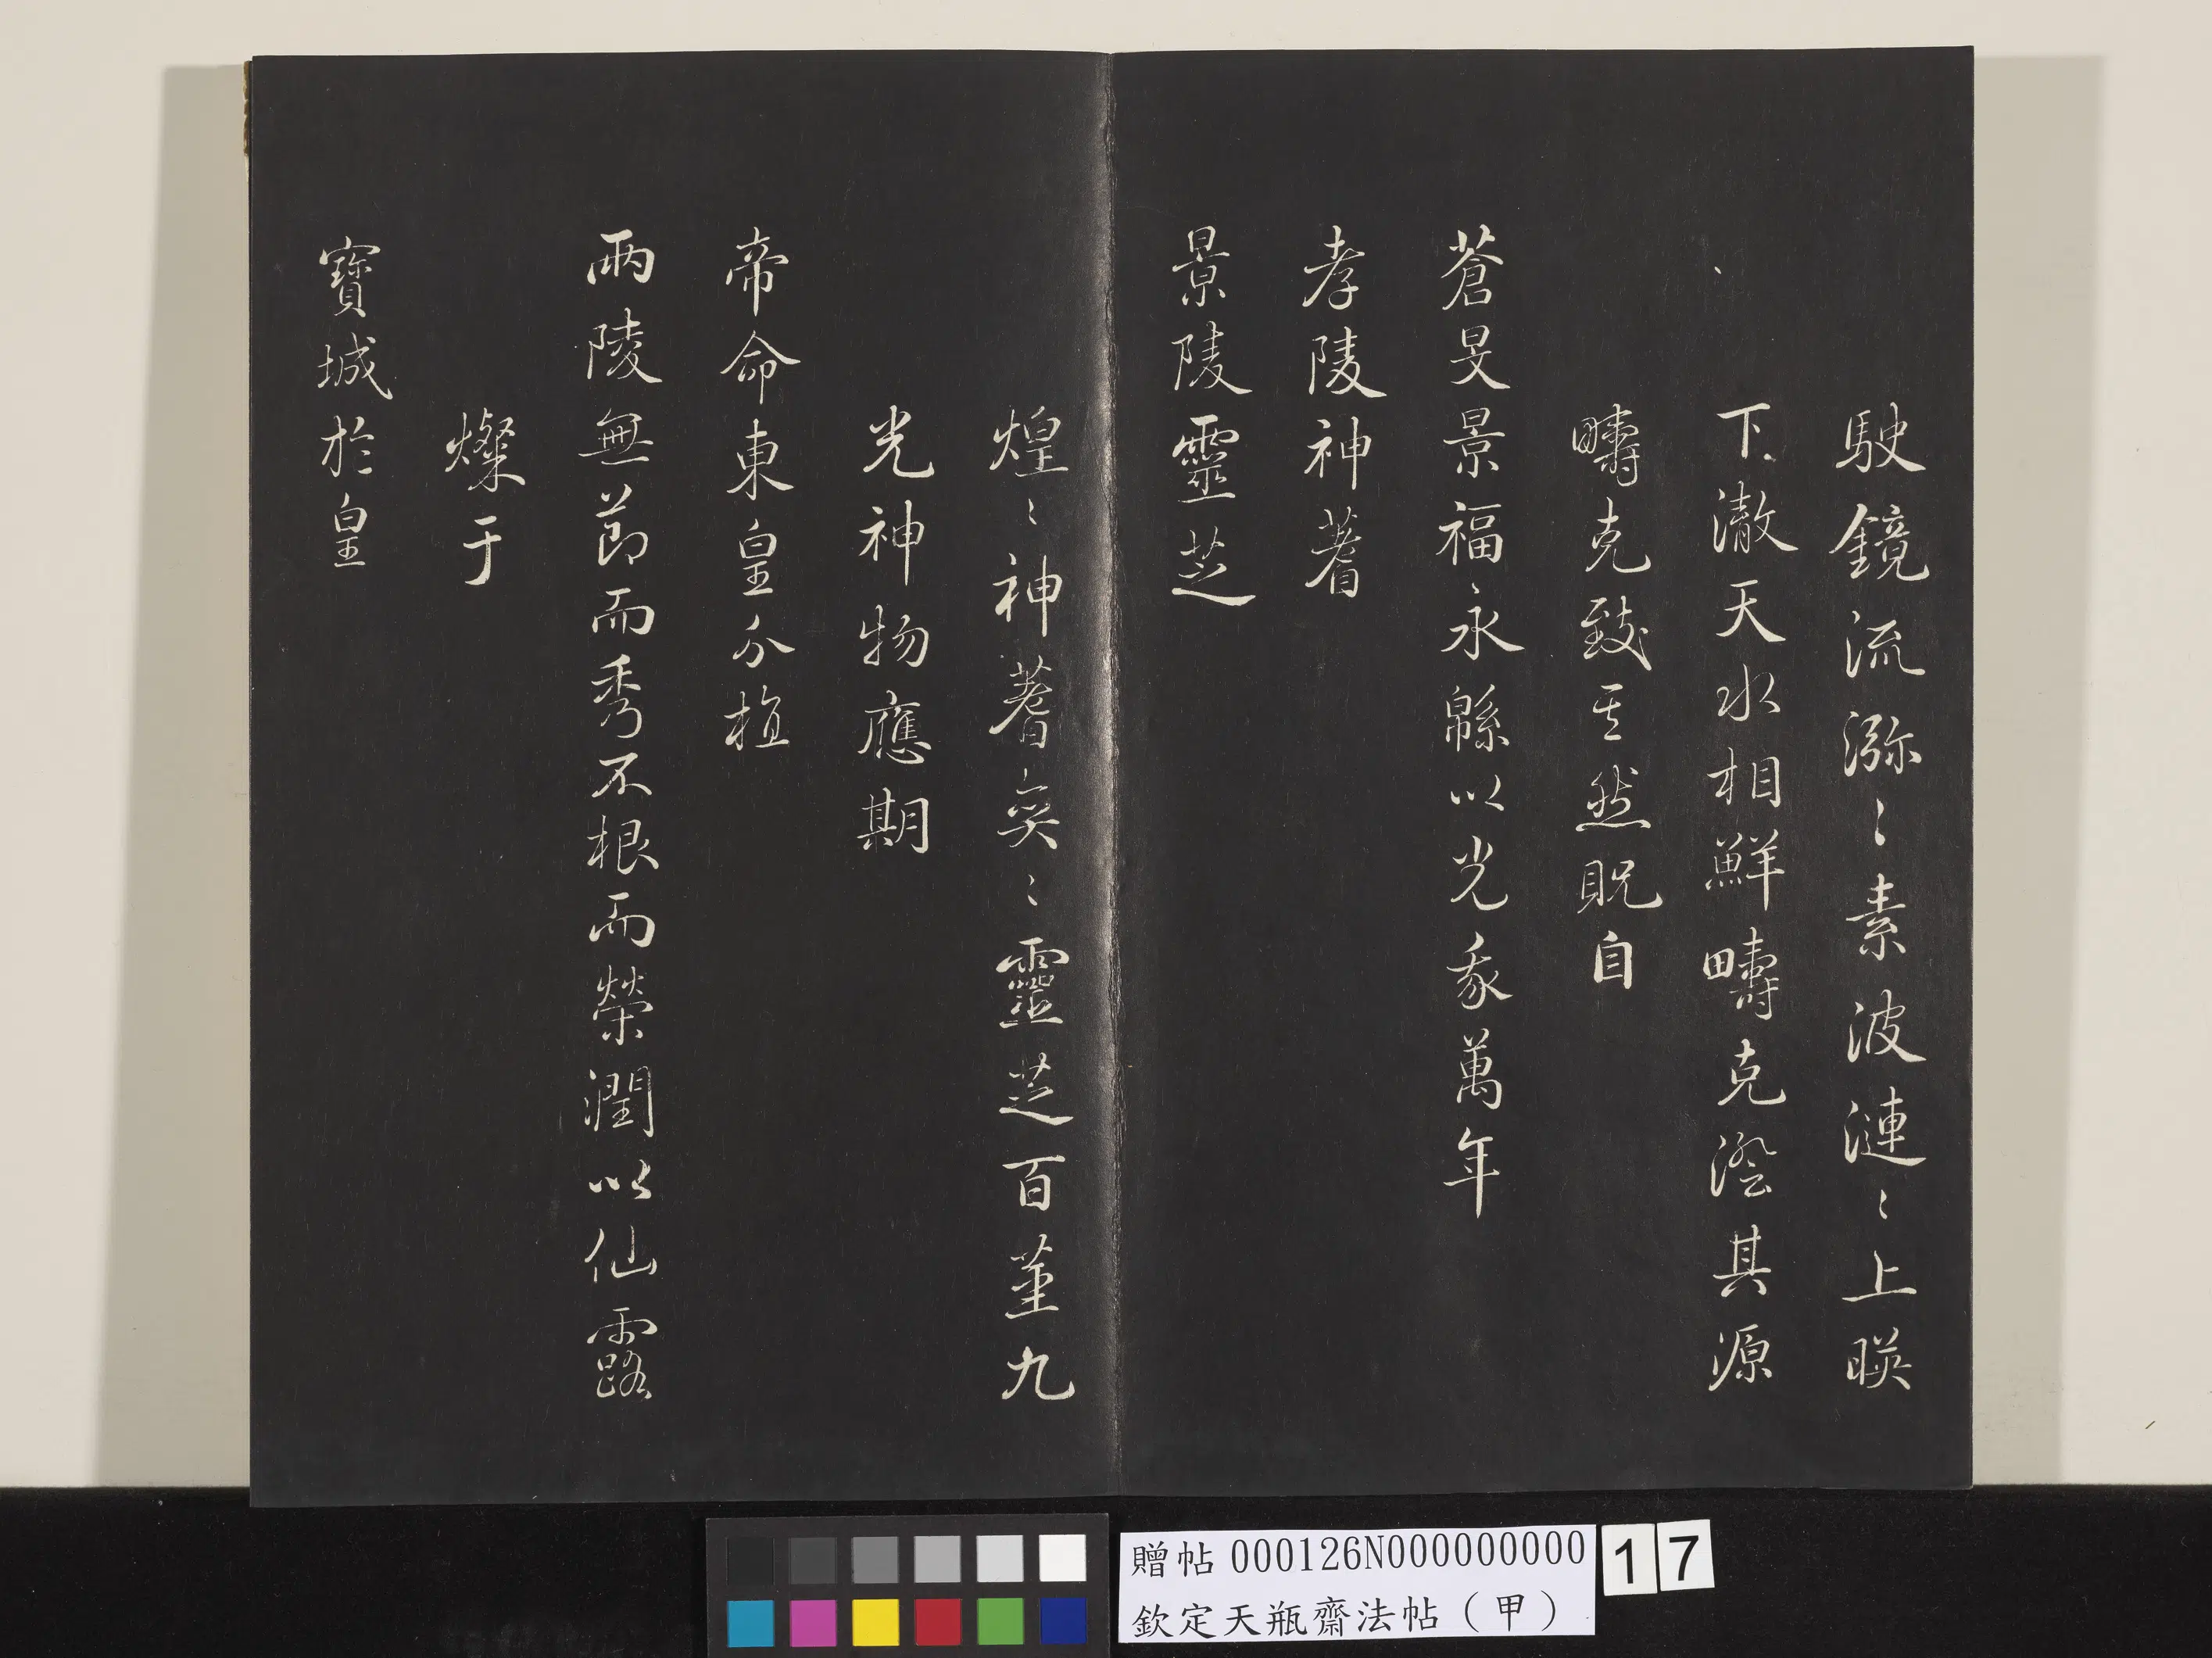 駛鏡流瀰〻素波漣〻上暎
下澈天水相鮮疇克澄其源
疇克致其然貺自
蒼旻景福〻永緜以光我萬年
孝陵神蓍
景陵靈芝
煌〻神蓍奕〻靈芝百莖九
光神物應期
帝命東皇分植
兩陵無節而秀不根而榮潤以仙露
燦于
寶城於皇
贈帖000126N000000000 17
欽定天瓶齋法帖（甲）